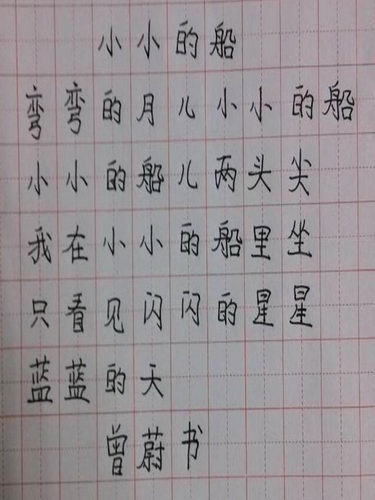 小小的船
弯弯的月儿小小的船
小小的船儿两头尖
我在小小的船里坐
只看见闪闪的星星
蓝蓝的天
曾蔚书